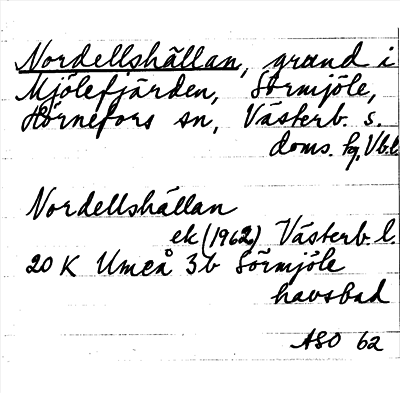 Nordellshällan, grund i
Mjölefjärden, Sörmjöle,
Hörnefors sn, Västerb. s.
doms. hg, Vb. l.
Nordellshällan
ek (1962) Västerb. l.
20 K Umeå 3b Sörmjöle
havsbad
ASO 62